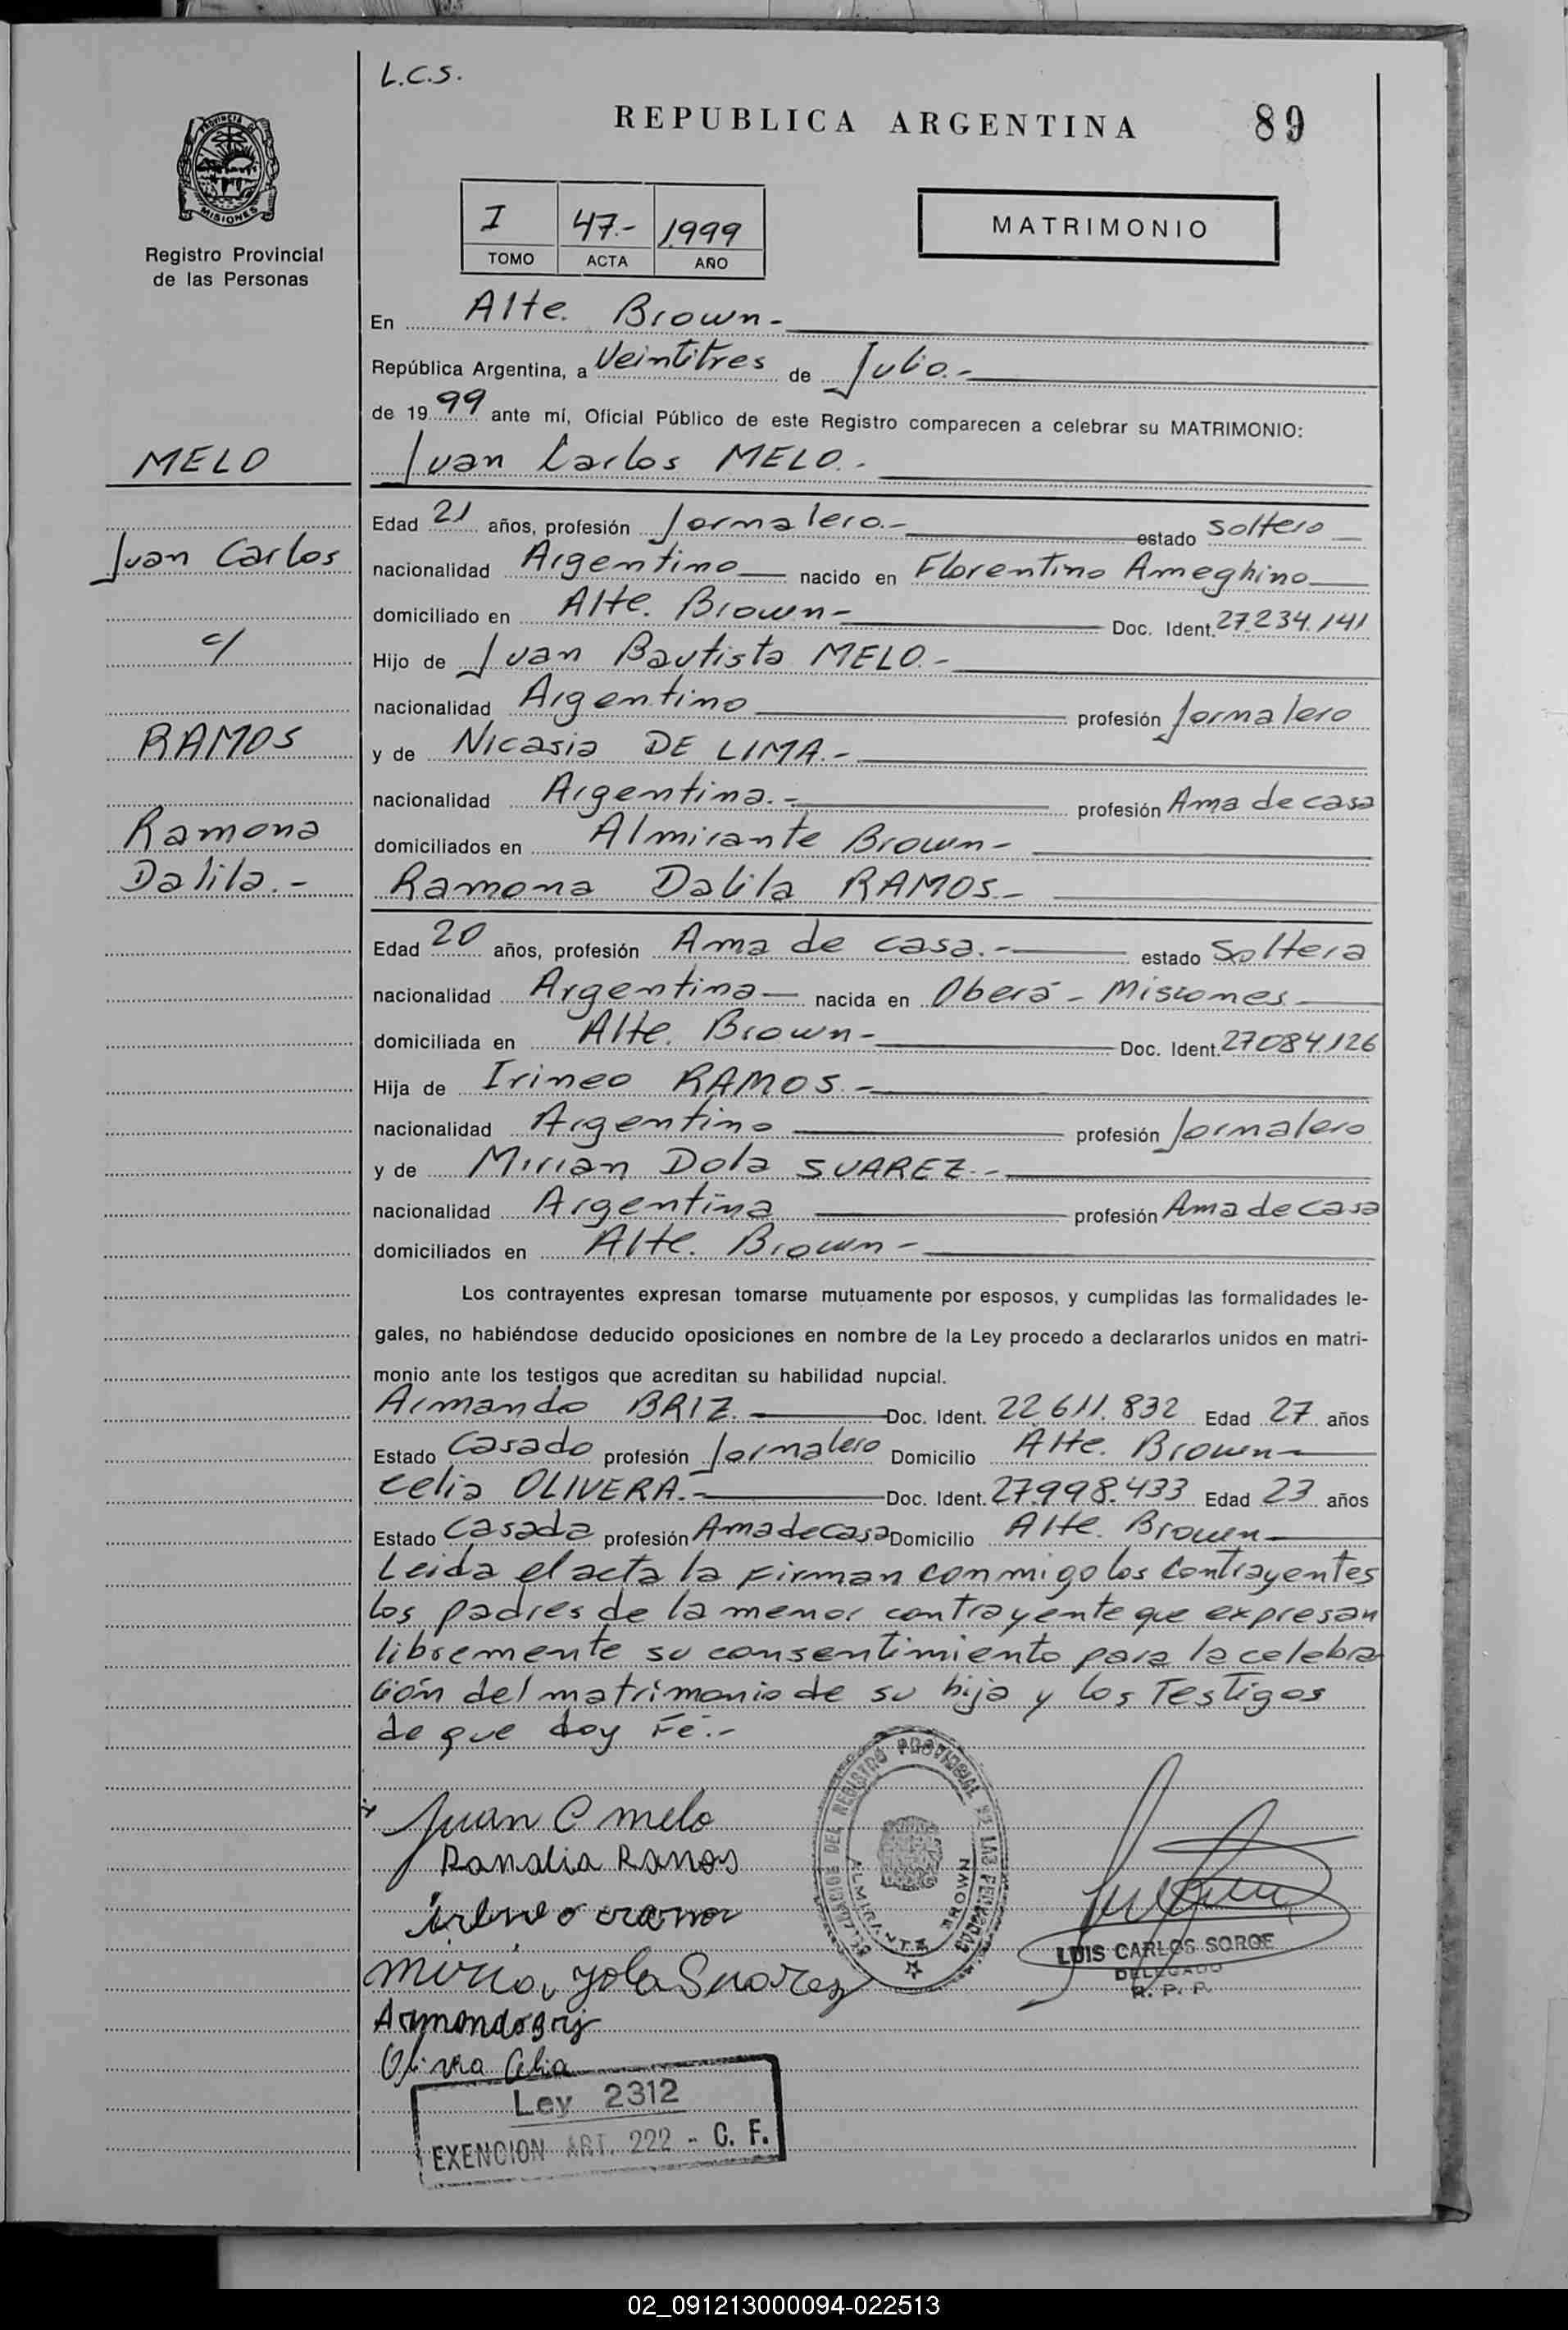 L.C.S.
REPUBLICA ARGENTINA 89
PROVINCIA DE
MISIONES
Registro Provincial
de las Personas
I 47.- 1999
TOMO ACTA AÑO
MATRIMONIO
En Alte. Brown.-
República Argentina, a Veintitres de Julio.-
de 19 99 ante mí, Oficial Público de este Registro comparecen a celebrar su MATRIMONIO:
MELO
Juan Carlos MELO.-
Edad 21 años, profesión Jornalero.- estado Soltero
Juan Carlos
nacionalidad Argentino nacido en Florentino Ameghino
domiciliado en Alte. Brown- Doc. Ident. 27.234.141
c/
Hijo de Juan Bautista MELO.-
nacionalidad Argentino profesión Jornalero
RAMOS
y de Nicasia DE LIMA.-
nacionalidad Argentina.- profesión Ama de casa
Ramona
domiciliados en Almirante Brown-
Dalila.-
Ramona Dalila RAMOS.-
Edad 20 años, profesión Ama de casa.- estado Soltera
nacionalidad Argentina nacida en Oberá - Misiones
domiciliada en Alte. Brown- Doc. Ident. 27084.126
Hija de Irineo RAMOS.-
nacionalidad Argentino profesión Jornalero
y de Mirian Dola SUAREZ.-
nacionalidad Argentina profesión Ama de casa
domiciliados en Alte. Brown-
Los contrayentes expresan tomarse mutuamente por esposos, y cumplidas las formalidades le-
gales, no habiéndose deducido oposiciones en nombre de la Ley procedo a declararlos unidos en matri-
monio ante los testigos que acreditan su habilidad nupcial.
Armando BRIZ.- Doc. Ident. 22.611.832 Edad 27 años
Estado Casado profesión Jornalero Domicilio Alte. Brown-
Celia OLIVERA.- Doc. Ident. 27.998.433 Edad 23 años
Estado Casada profesión Ama de casa Domicilio Alte. Brown-
Leida el acta la Firman conmigo los Contrayentes
los padres de la menor contrayente que expresan
libremente su consentimiento para la celebra
ción del matrimonio de su hija y los Testigos
de que doy Fé.-
DEL REGISTRO PROVINCIAL DE LAS PERSONAS
ALMIRANTE BROWN
Juan C melo
Ramos
Suarez
LUIS CARLOS SOROE
DELEGADO
R. P. P.
Armando Briz
Celia
Ley 2312
EXENCION ART. 222 - C. F.
02_091213000094-022513